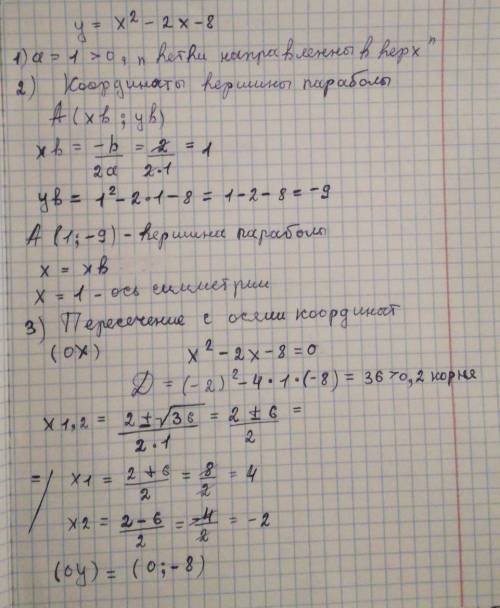 y = x² - 2x - 8
1) a = 1 > 0, "ветви направленны в верх"
2) Координаты вершины параболы
A (xв ; yв)
xв = -b/2a = 2/2·1 = 1
yв = 1² - 2·1 - 8 = 1 - 2 - 8 = -9
A (1; -9) - вершина параболы
x = xв
x = 1 - ось симметрии
3) Пересечение с осями координат
(OX) x² - 2x - 8 = 0
D = (-2)² - 4·1·(-8) = 36 > 0, 2 корня
x1,2 = 2 ± √36 / 2·1 = 2 ± 6 / 2 =
= / x1 = 2 + 6 / 2 = 8/2 = 4
x2 = 2 - 6 / 2 = -4/2 = -2
(OY) = (0; -8)